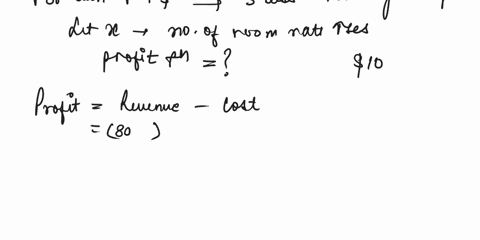 Let x → no. of room nats rses
profit fn = ? $10
Profit = Revenue - cost
= (80 )